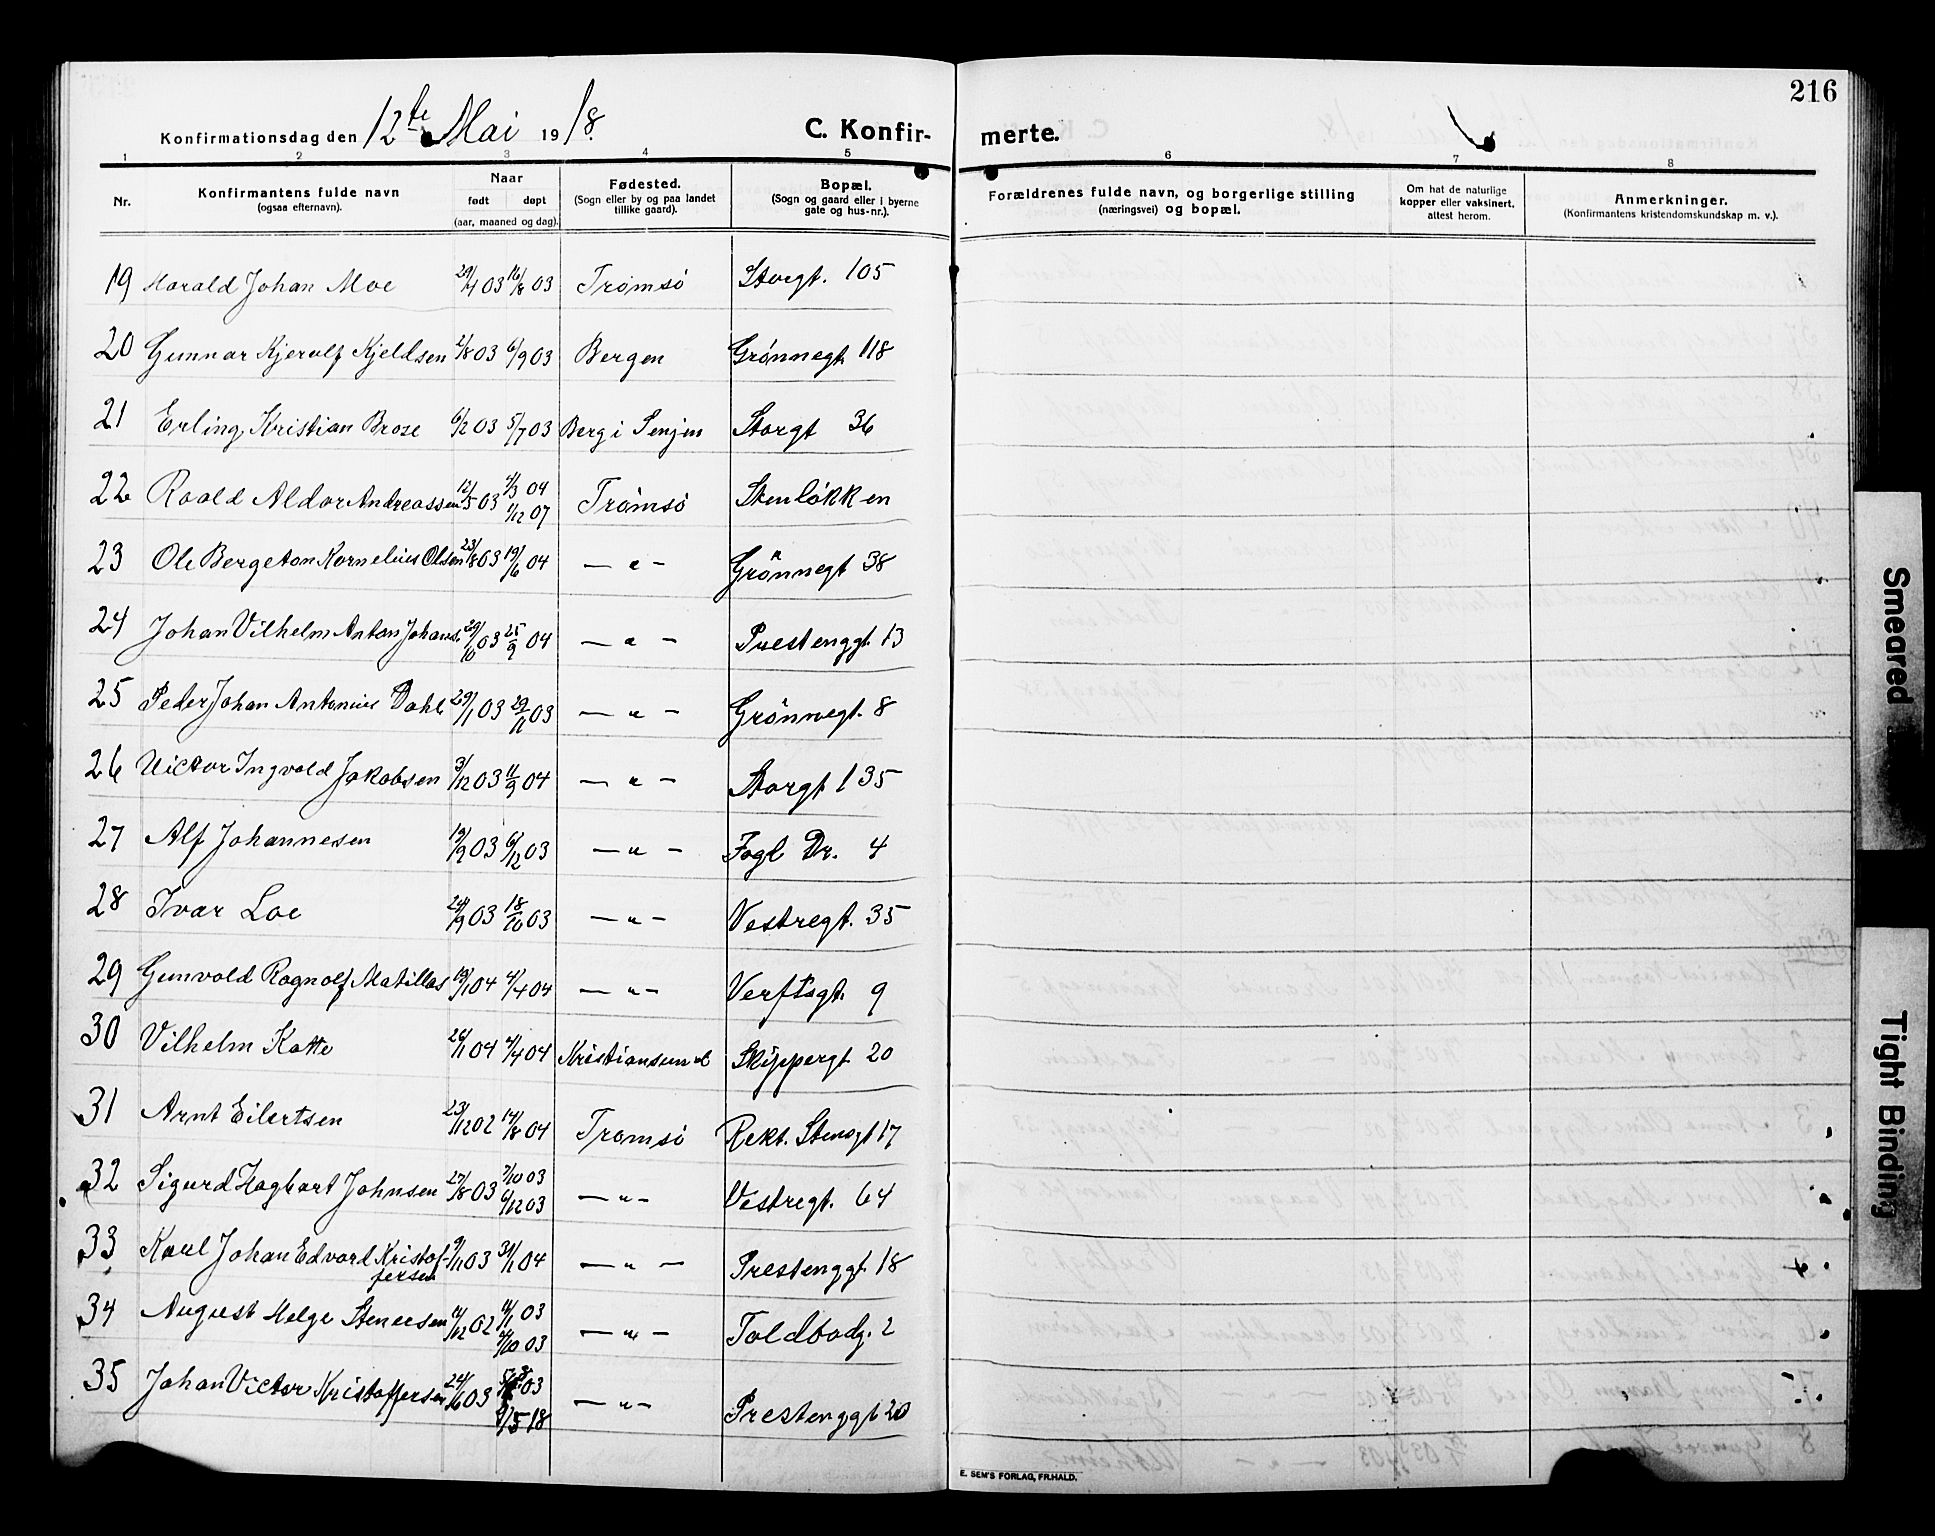 216
Konfirmationsdag den 12te Mai 1918.
C. Konfirmerte.
1 2 3 4 5 6 7 8
Nr.
Konfirmantens fulde navn
(ogsaa efternavn).
Naar
født døpt
(aar, maaned og dag).
Fødested.
(Sogn eller by og paa landet
tillike gaard).
Bopæl.
(Sogn og gaard eller i byerne
gate og hus-nr.).
Forældrenes fulde navn, og borgerlige stilling
(næringsvei) og bopæl.
Om hat de naturlige
kopper eller vaksinert.
attest herom.
Anmerkninger.
(Konfirmantens kristendomskundskap m. v.).
19 Harald Johan Moe 29/4 03 16/8 03 Tromsö Storgt. 105
20 Gunnar Kjerulf Kjeldsen 2/8 03 6/9 03 Bergen Grønnegt. 118
21 Erling Kristian Brose 6/2 03 5/7 03 Berg i Senjen Storgt 36
22 Roald Aldor Andreassen 12/5 03 4/3 04 Tromsö Stenløkken
1/12 07
23 Ole Bergeton Kornelius Olsen 23/8 03 19/6 04 — " — Grönnegt 38
24 Johan Vilhelm Anton Johans. 29/10 03 25/9 04 — " — Prestenggt. 13
25 Peder Johan Antonius Dahl 29/1 03 29/11 03 — " — Grönnegt. 8
26 Victor Ingvald Jakobsen 3/12 03 11/9 04 — " — Storgt 135
27 Alf Johannesen 19/9 03 6/12 03 — " — Fogt Dr. 4
28 Ivar Loe 24/9 03 18/10 03 — " — Vestregt. 35
29 Gunvald Ragnolf Matillas 19/1 04 4/4 04 — " — Verftsgt. 9
30 Vilhelm Kotte 26/1 04 4/4 04 Kristianssund Skippergt 20
31 Arnt Eilertsen 23/12 02 14/8 04 Tromsö Rekt. Stensgt 17
32 Sigurd Hagbart Johnsen 27/8 03 7/10 03 — " — Vestregt. 64
6/12 03
33 Karl Johan Edvard Kristof- 9/11 03 31/1 04 — " — Prestenggt. 18
fersen
34 August Helge Stenersen 11/12 02 11/1 03 — " — Toldbodg. 2
4/10 03
35 Johan Victor Kristoffersen 24/6 03 03 — " — Prestenggt 20
9/5 18
E. SEM'S FORLAG, FR.HALD.
Smeared
Tight Binding